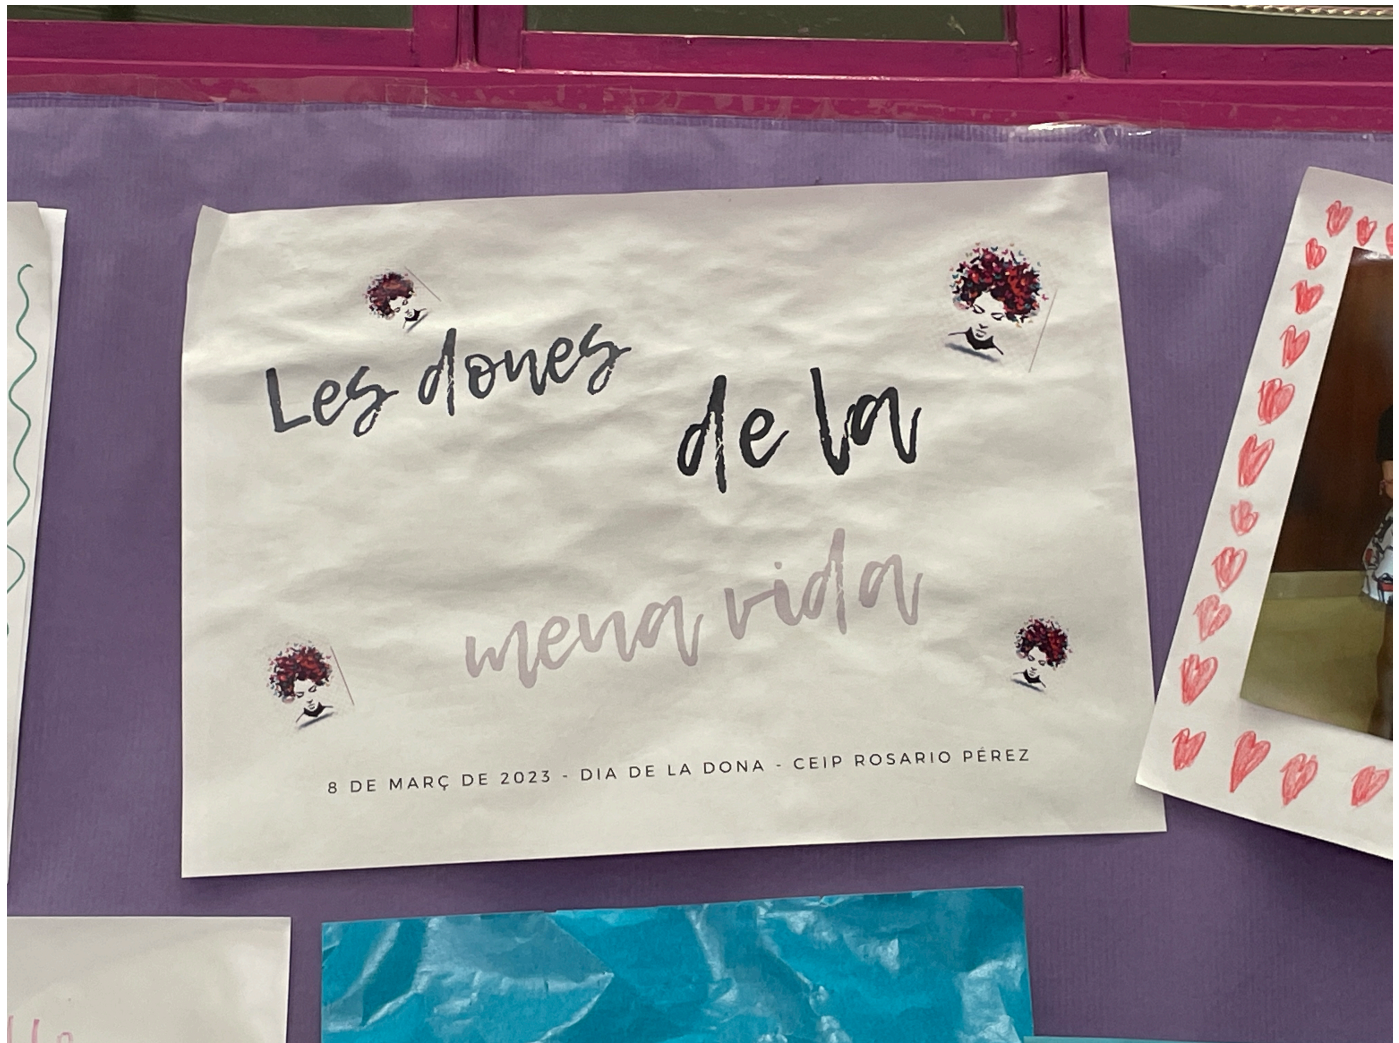 Les dones
de la
mena vida
8 DE MARÇ DE 2023 - DIA DE LA DONA - CEIP ROSARIO PÉREZ